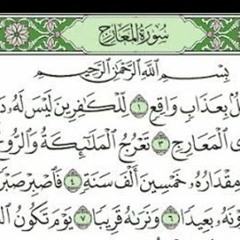 سُورَةُ المَعَارِجِ
بِسْمِ ٱللَّهِ ٱلرَّحْمَٰنِ ٱلرَّحِيمِ
لٌ بِعَذَابٍ وَاقِعٍ ١ لِّلْكَٰفِرِينَ لَيْسَ لَهُۥ د
ى ٱلْمَعَارِجِ ٣ تَعْرُجُ ٱلْمَلَٰٓئِكَةُ وَٱلرُّو
مِقْدَارُهُۥ خَمْسِينَ أَلْفَ سَنَةٍ ٤ فَٱصْبِرْ صَبْرً
نَهُۥ بَعِيدًا ٦ وَنَرَىٰهُ قَرِيبًا ٧ يَوْمَ تَكُونُ ٱل